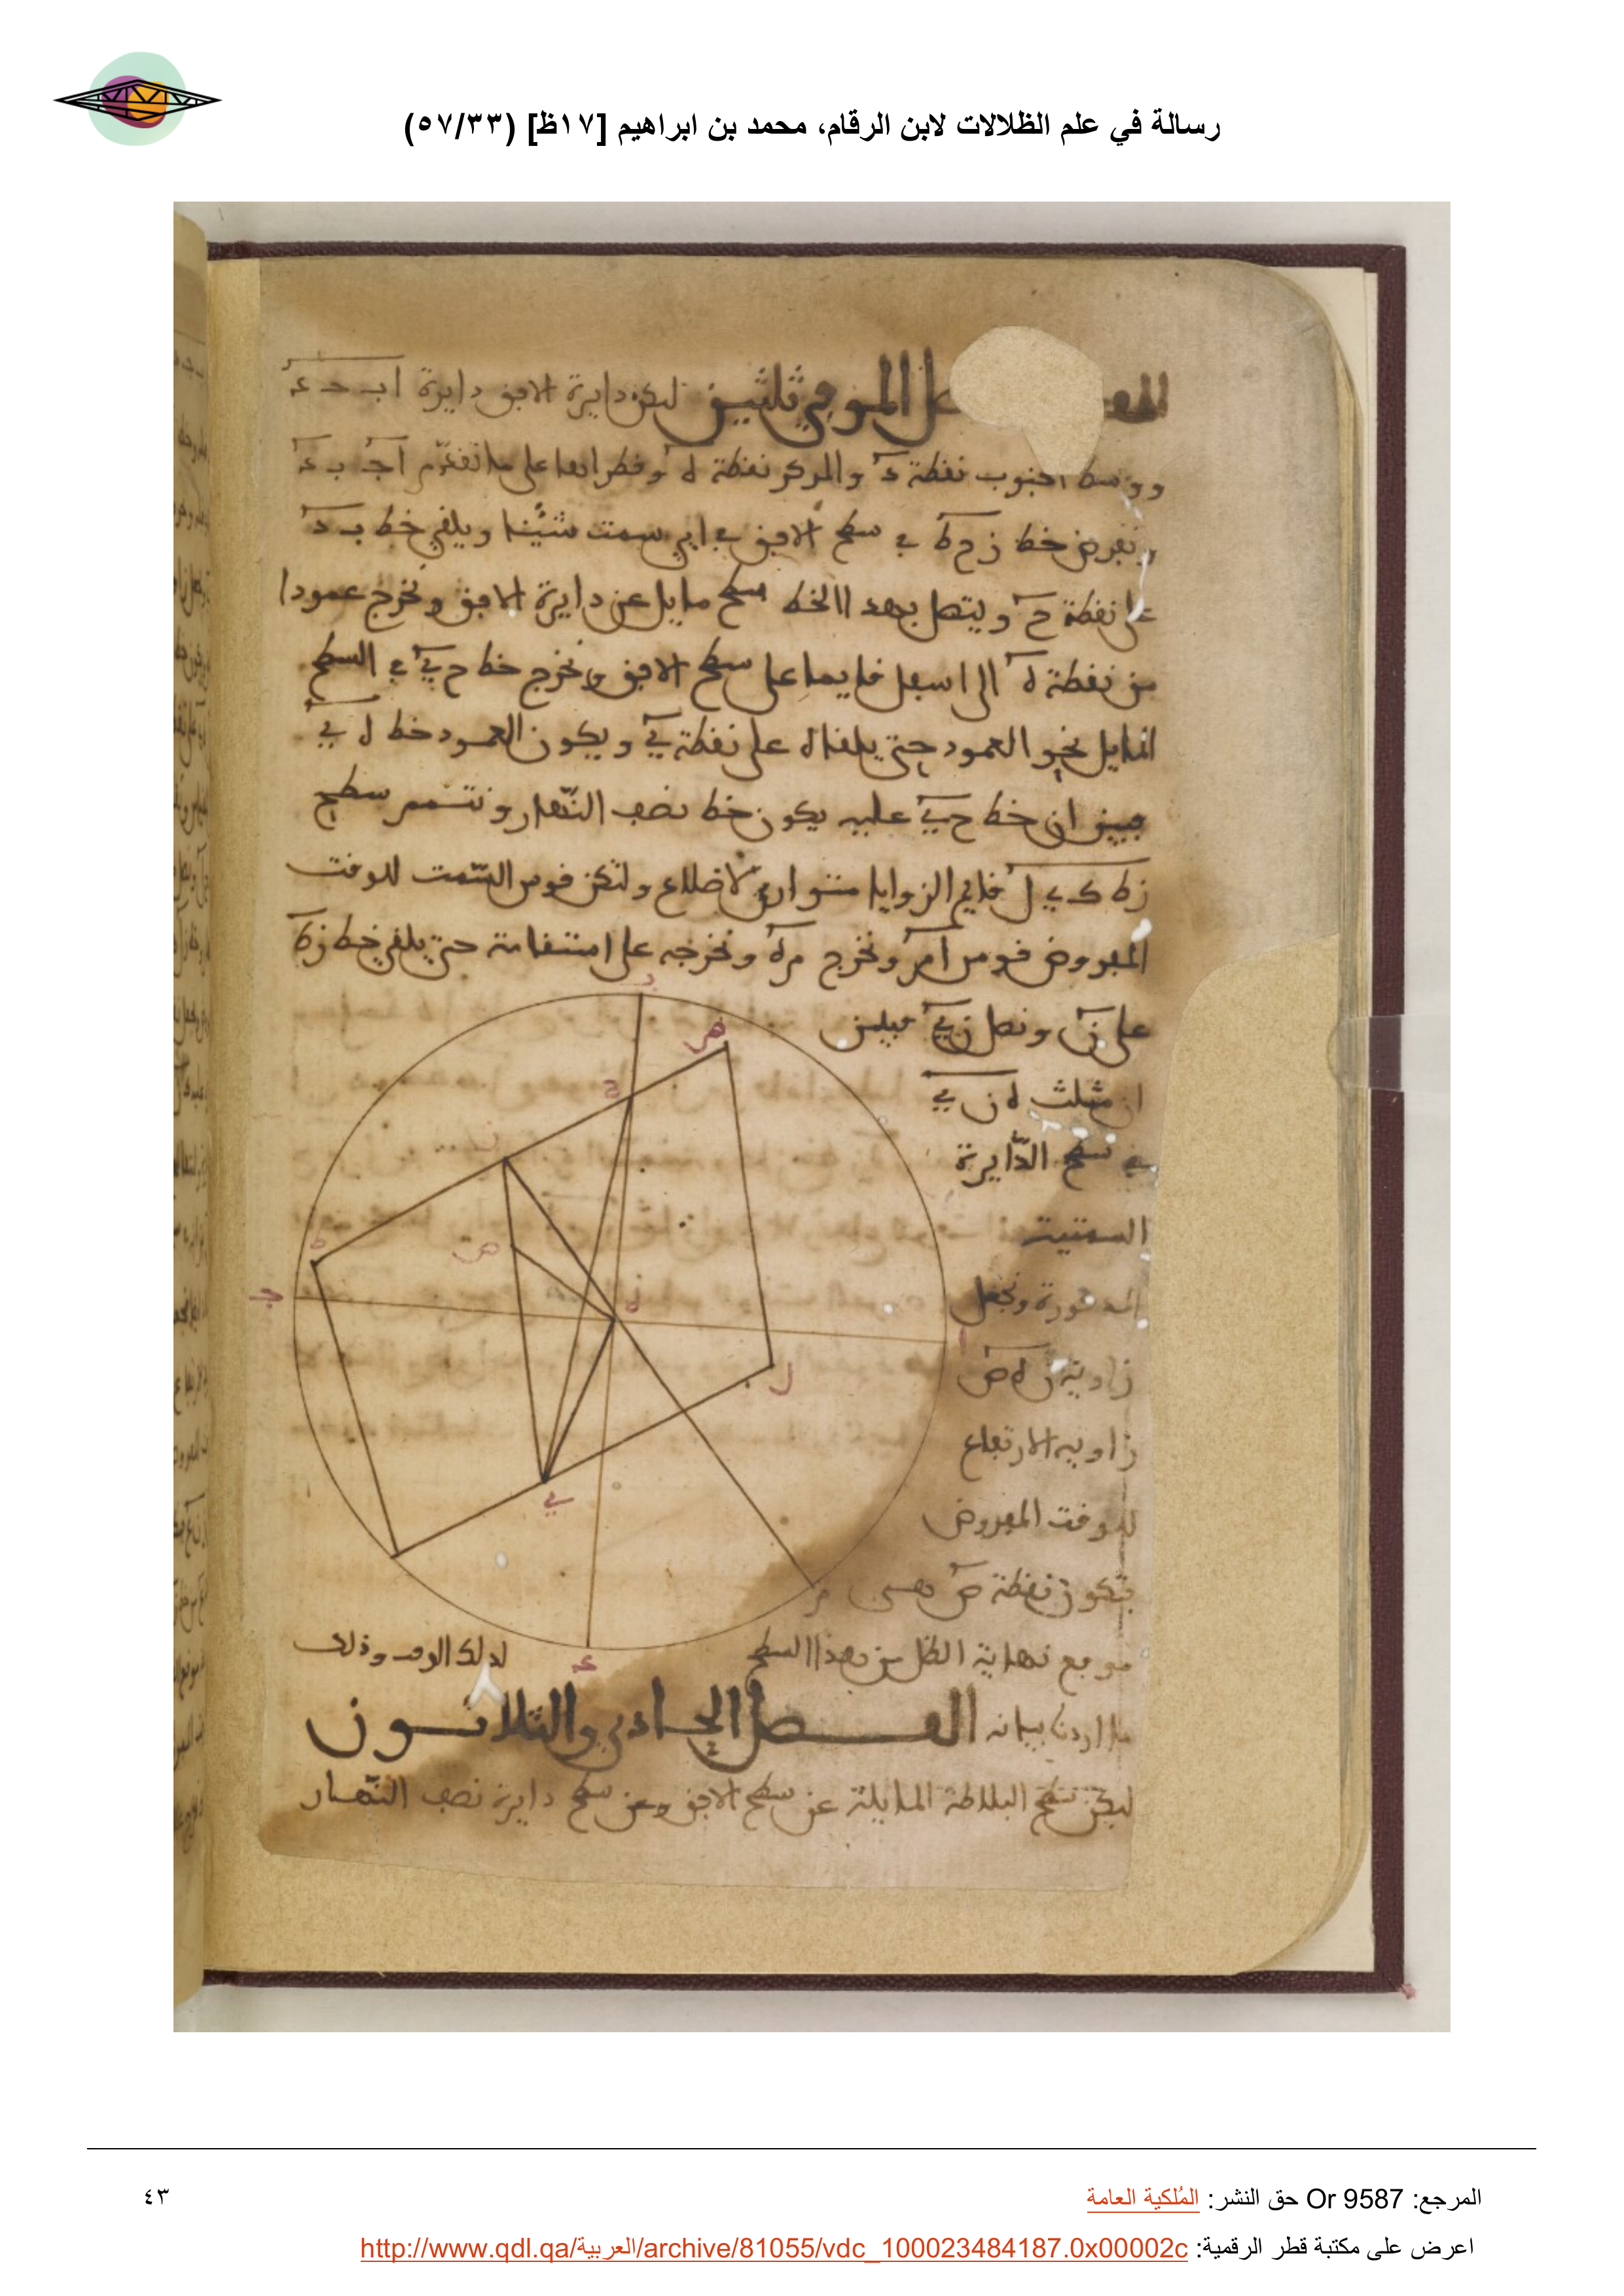 رسالة في علم الظلالات لابن الرقام، محمد بن ابراهيم [١٧ظ] (٥٧/٣٣)
الموفي ثلثين لتكن دايرة الافق دايرة اب حد
ووسط الجنوب نقطة د والمركز نقطة ه وقطراها على ما تقدم اج ب د
ونفرض خط زح ط في سطح الافق في اي سمت شئنا ويلقى خط ب د
على نقطة ح ويتصل بهذا الخط سطح مايل عن دايرة الافق ونخرج عمودا
من نقطة ه الى اسفل قايما على سطح الافق ونخرج خط ح ي في السطح
المايل نحو العمود حتى يلقاه على نقطة ي ويكون العمود خط ه ي
فبين ان خط ح ي عليه يكون خط نصف النهار ونتمم سطح
ط ك ي ل قايم الزوايا متوازي الاضلاع ولتكن قوس السمت للوقت
المفروض قوس ام ونخرج م ه ونخرجه على استقامة حتى يلقى خط زط
على ن ونصل ن ي فبين
ان مثلث ه ن ي
في سطح الدايرة
السمتية
المذكورة ونجعل
زاوية ن ه ص
زاوية الارتفاع
للوقت المفروض
فتكون نقطة ص هي
موقع نهاية الظل من هذا السطح لذلك الوقت وذلك
ما اردنا بيانه الفصل الحادي والثلاثون
ليكن سطح البلاطة المايلة عن سطح الافق وعن سطح دايرة نصف النهار
ب
ح
ن
ط
ص
ج
ه
ا
ل
ي
م
المرجع: Or 9587 حق النشر: المُلكية العامة
٤٣
اعرض على مكتبة قطر الرقمية: http://www.qdl.qa/العربية/archive/81055/vdc_100023484187.0x00002c